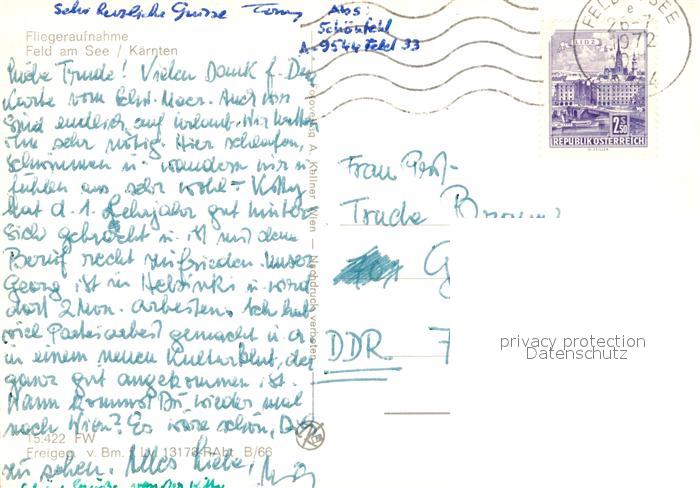 Sehr herzliche Grüsse
Abs:
Schönfehl
A-9544 Feld 33
Fliegeraufnahme
Feld am See / Kärnten
Liebe Trude! Vielen Dank f. Deine
Karte vom Schw. Meer. Auch wir
sind endlich auf Urlaub. Wir hatten
ihn sehr nötig. Hier schlafen,
schwimmen u. wandern wir u.
fühlen uns sehr wohl – Kitty
hat d. 1. Lehrjahr gut hinter
sich gebracht u. ist mit dem
Beruf recht zufrieden. Unser
Georg ist in Helsinki u. wird
dort 2 Mon. arbeiten. Ich hab
viel Parteiarbeit gemacht u. a.
in einem neuen Kulturblatt, das
ganz gut angekommen ist.
Wann kommst Du wieder mal
nach Wien? Es wäre schön, Dich
zu sehen. Alles Liebe,
15.422 FW
Freigeg. v. Bm. f. LV 13173-RAbt. B/66
A. Kellner Wien — Nachdruck verboten
FELD AM SEE
e
26-7
1972
LINZ
2S50
REPUBLIK ÖSTERREICH
Frau Prof.
Trude
G
DDR 7
privacy protection
Datenschutz